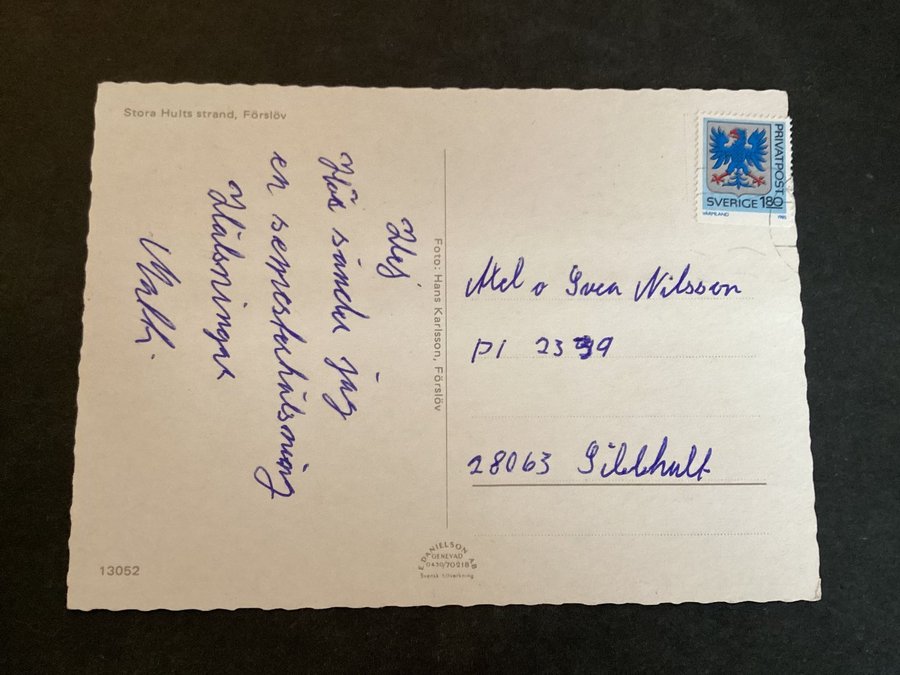 Stora Hults strand, Förslöv
Hej
Här sänder jag
en semesterhälsning
Hälsningar
Foto: Hans Karlsson, Förslöv
PRIVATPOST
SVERIGE 180
VÄRMLAND 1985
Axel o Svea Nilsson
Pl 2399
28063 Sibbhult
E. DANIELSON AB
GENEVAD
0430/70218
Svensk tillverkning
13052